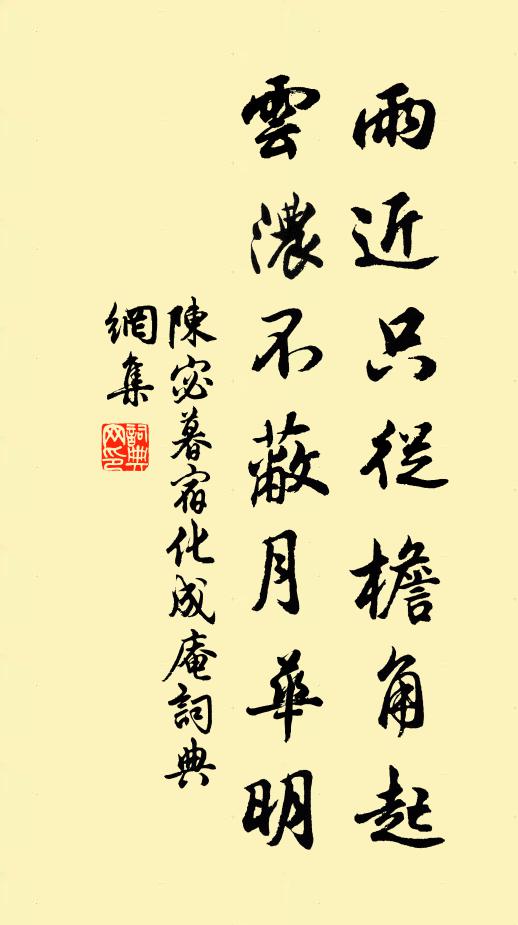 雨近只從檐角起
雲濃不蔽月華明
陳宓暮宿化成庵詞典
網集
詞典網印